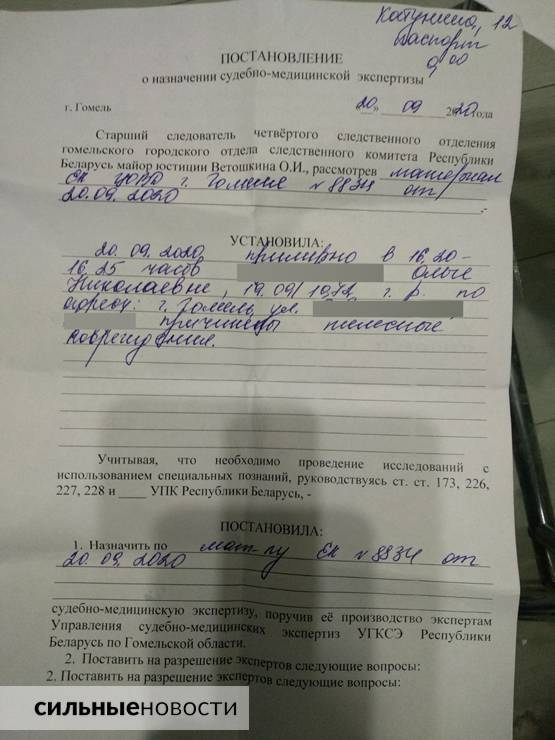 Катунина, 12
паспорт
9⁰⁰
ПОСТАНОВЛЕНИЕ
о назначении судебно-медицинской экспертизы
г. Гомель
20 09 2020года
Старший следователь четвёртого следственного отделения
гомельского городского отдела следственного комитета Республики
Беларусь майор юстиции Ветошкина О.И., рассмотрев материал
ЕК г. Гомеля №8834 от
20.09.2020
УСТАНОВИЛА:
20.09.2020 примерно в 16.20-
16.25 часов Ольге
Николаевне, 19.09.1972 г.р. по
адресу: г. Гомель, ул.
причинены телесные
повреждения.
Учитывая, что необходимо проведение исследований с
использованием специальных познаний, руководствуясь ст. ст. 173, 226,
227, 228 и ____ УПК Республики Беларусь, -
ПОСТАНОВИЛА:
1. Назначить по мат-лу ЕК №8834 от
20.09.2020
судебно-медицинскую экспертизу, поручив её производство экспертам
Управления судебно-медицинских экспертиз УГКСЭ Республики
Беларусь по Гомельской области.
2. Поставить на разрешение экспертов следующие вопросы:
2. Поставить на разрешение экспертов следующие вопросы:
СИЛЬНЫЕНОВОСТИ